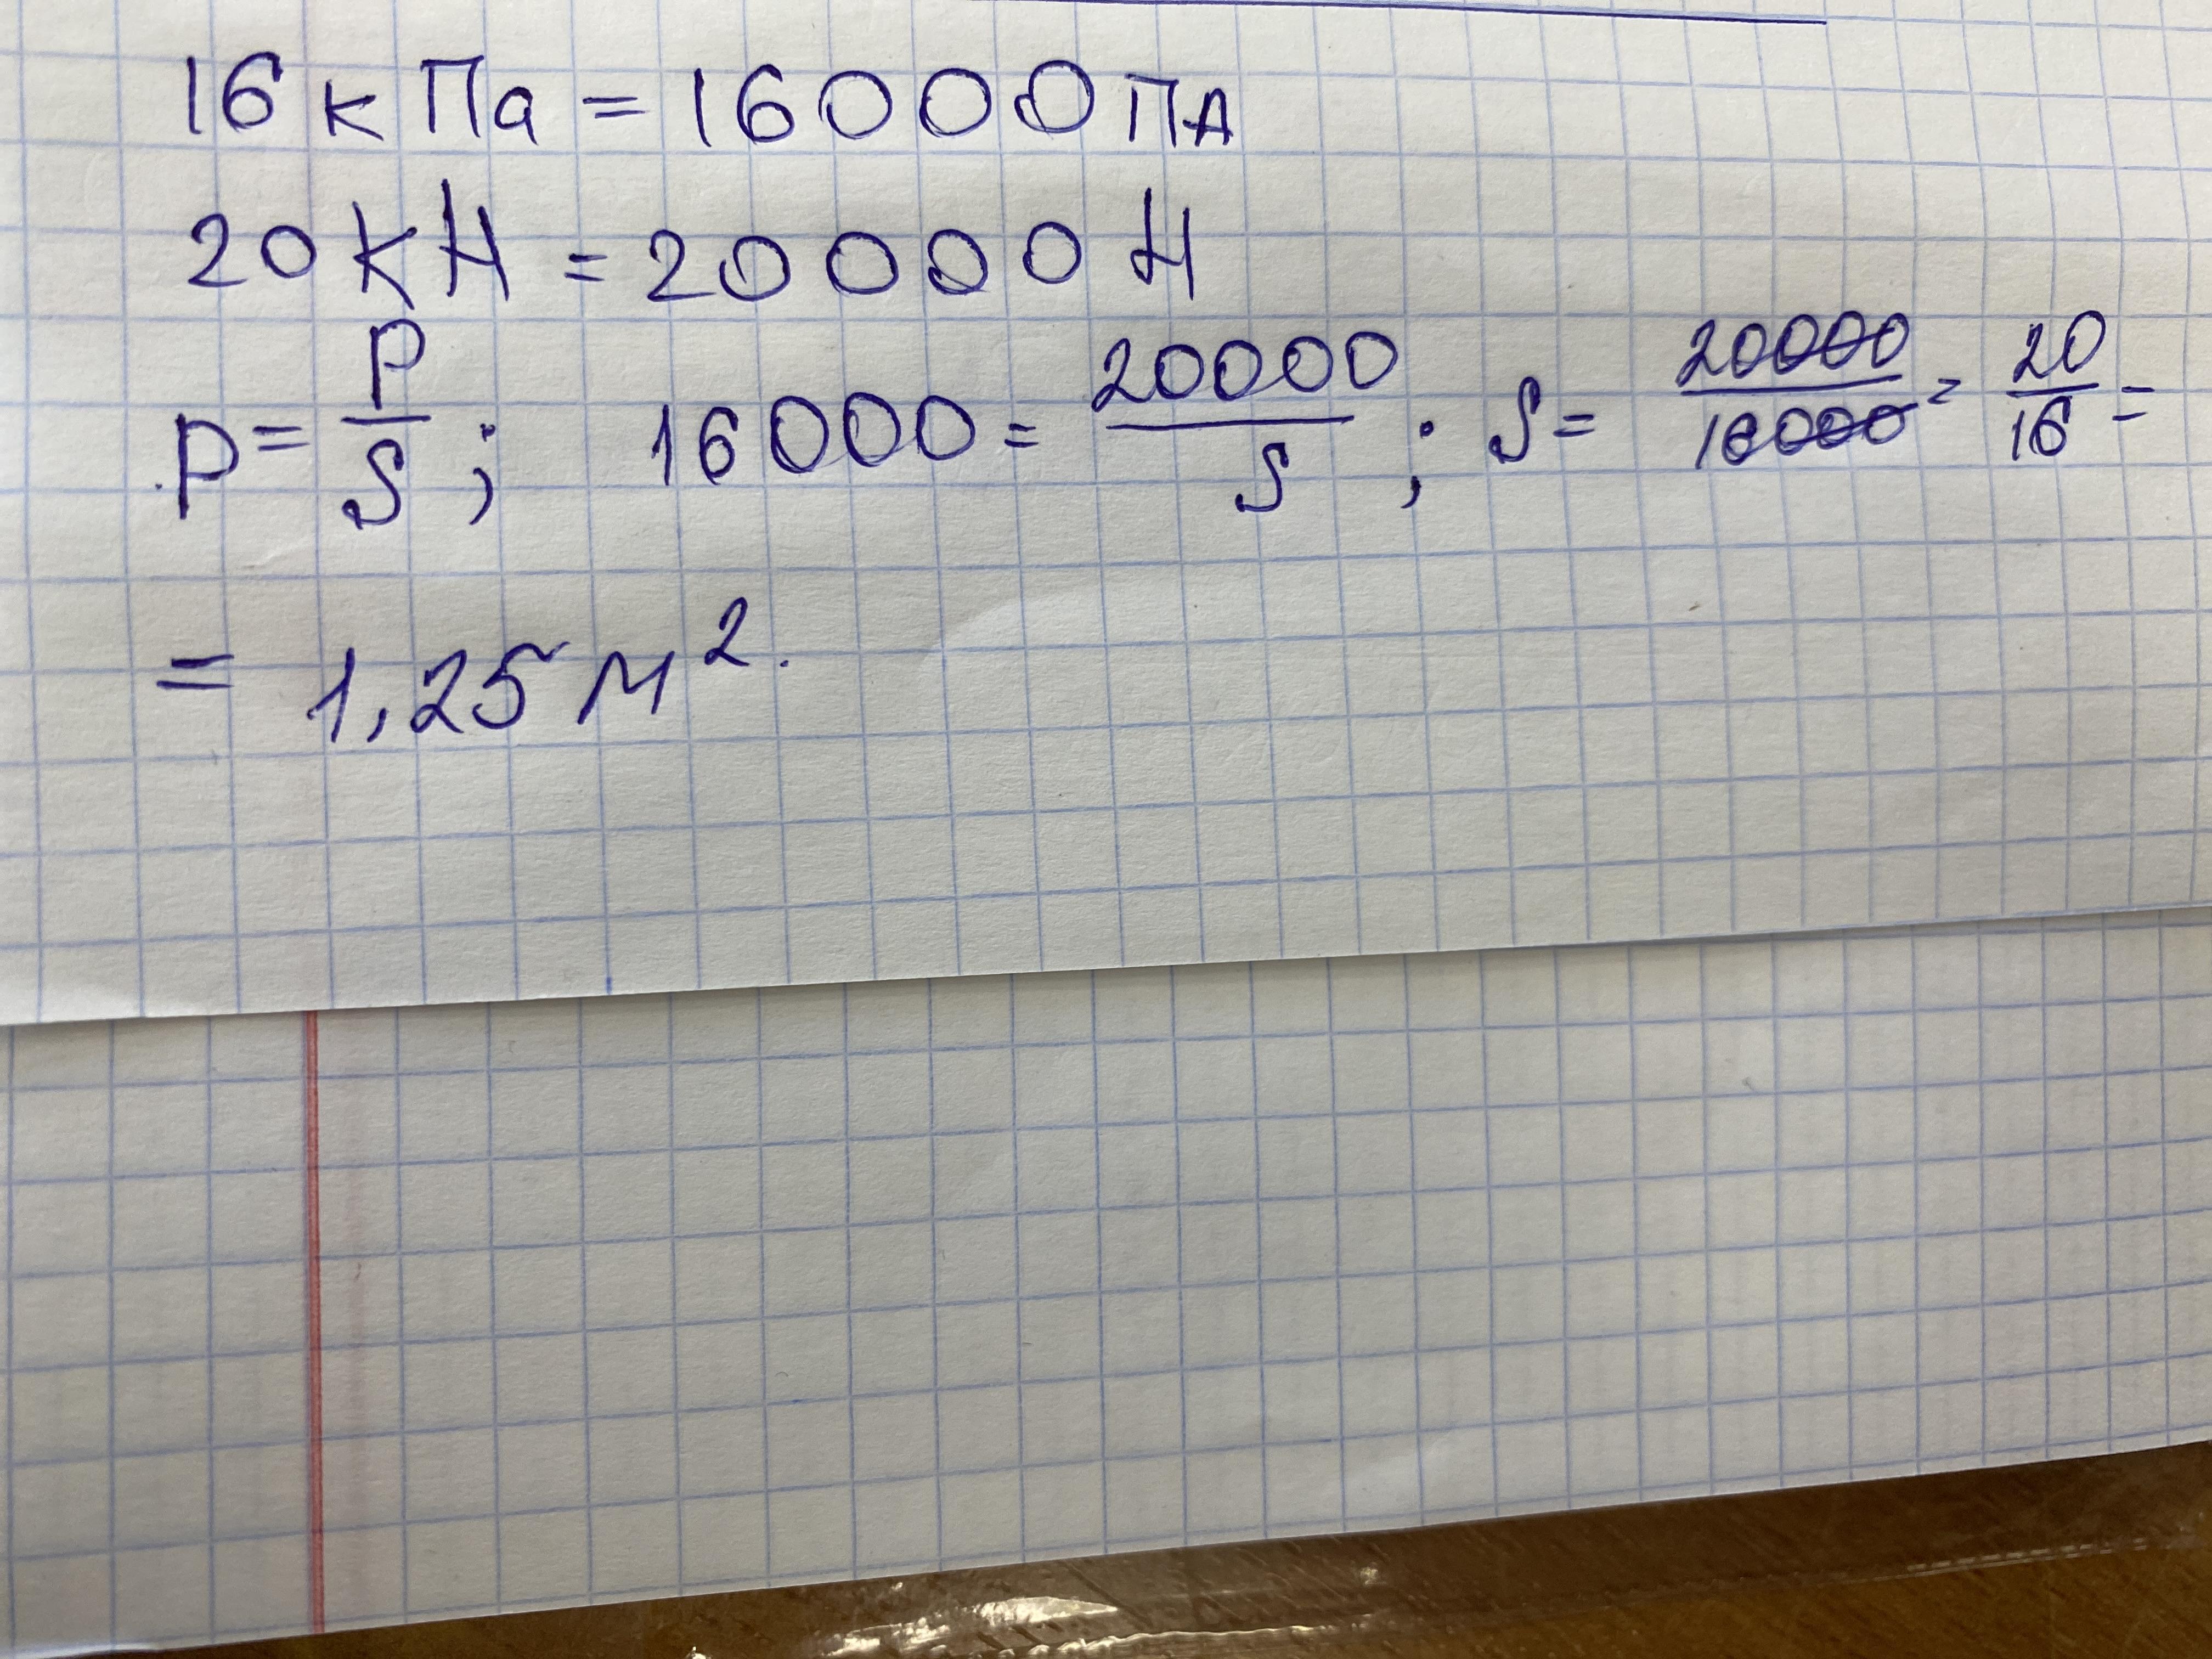 16 кПа = 16000 ПА
20 кН = 20000 Н
p = P/S ; 16000 = 20000/S ; S = 20000/16000 = 20/16 =
= 1,25 м².